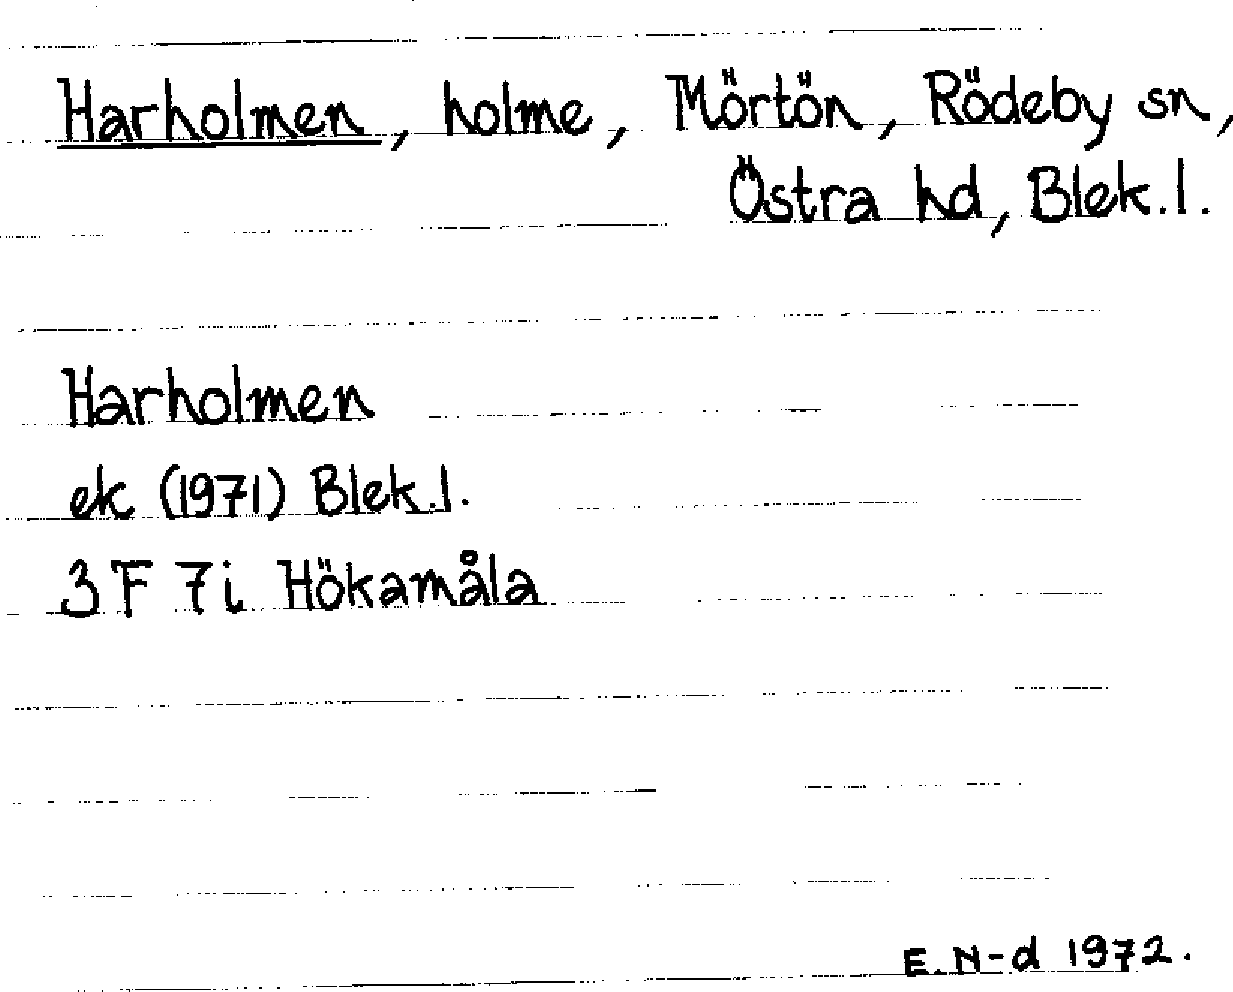 Harholmen, holme, Mörtön, Rödeby sn,
Östra hd, Blek.l.
Harholmen
ek (1971) Blek.l.
3F 7i Hökamåla
E.N-d 1972.